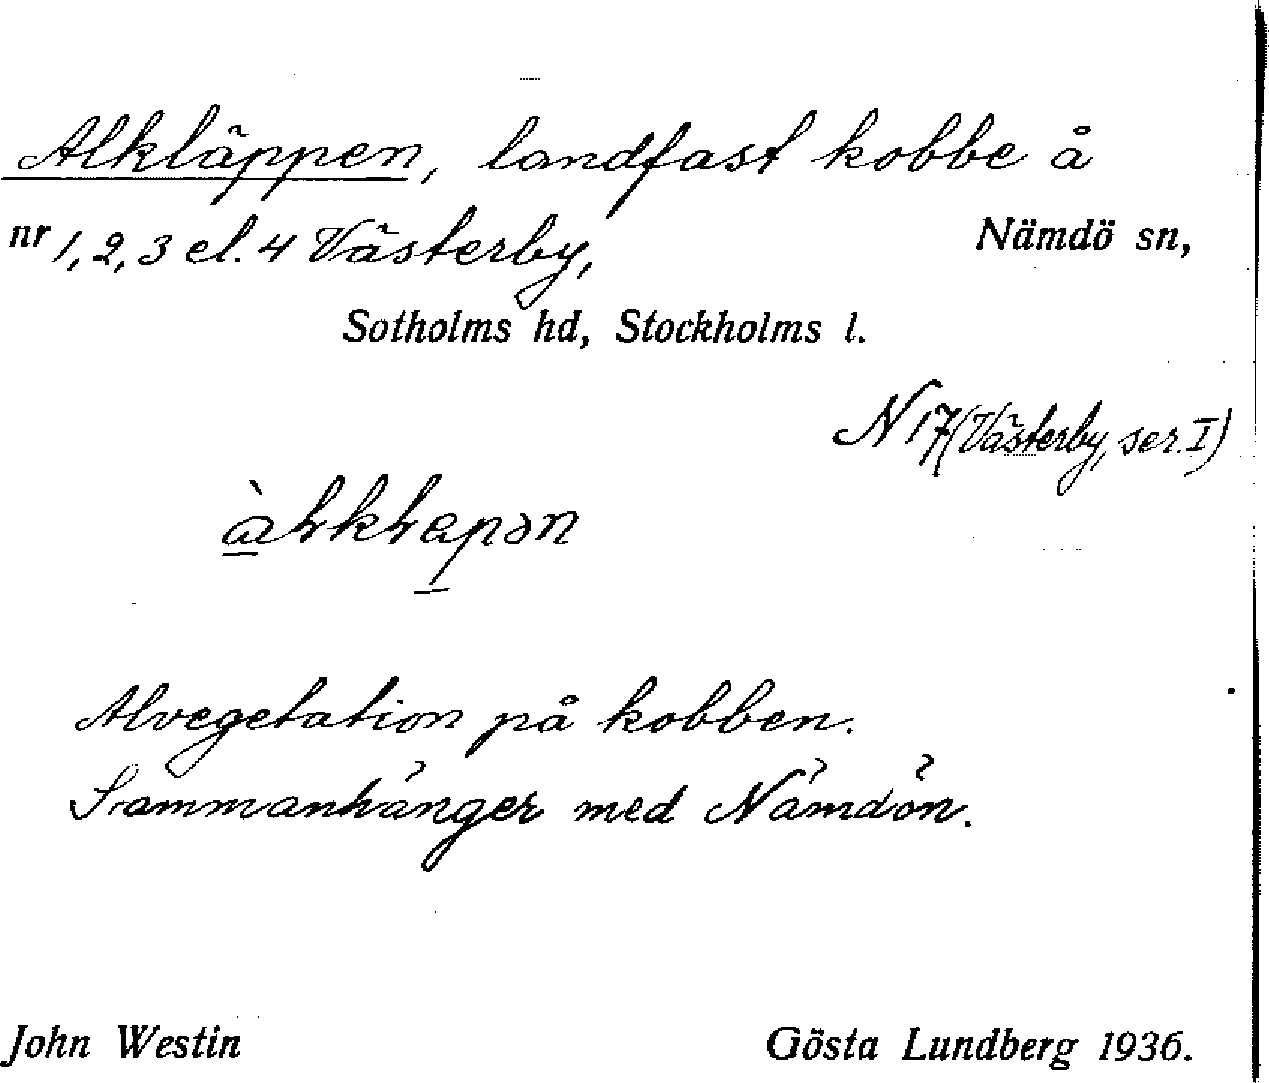 Alkläppen, landfast kobbe å
nr 1, 2, 3 el. 4 Västerby, Nämdö sn,
Sotholms hd, Stockholms l.
N 17 (Västerby, ser. I)
Alvegetation på kobben.
Sammanhänger med Nämdön.
John Westin Gösta Lundberg 1936.